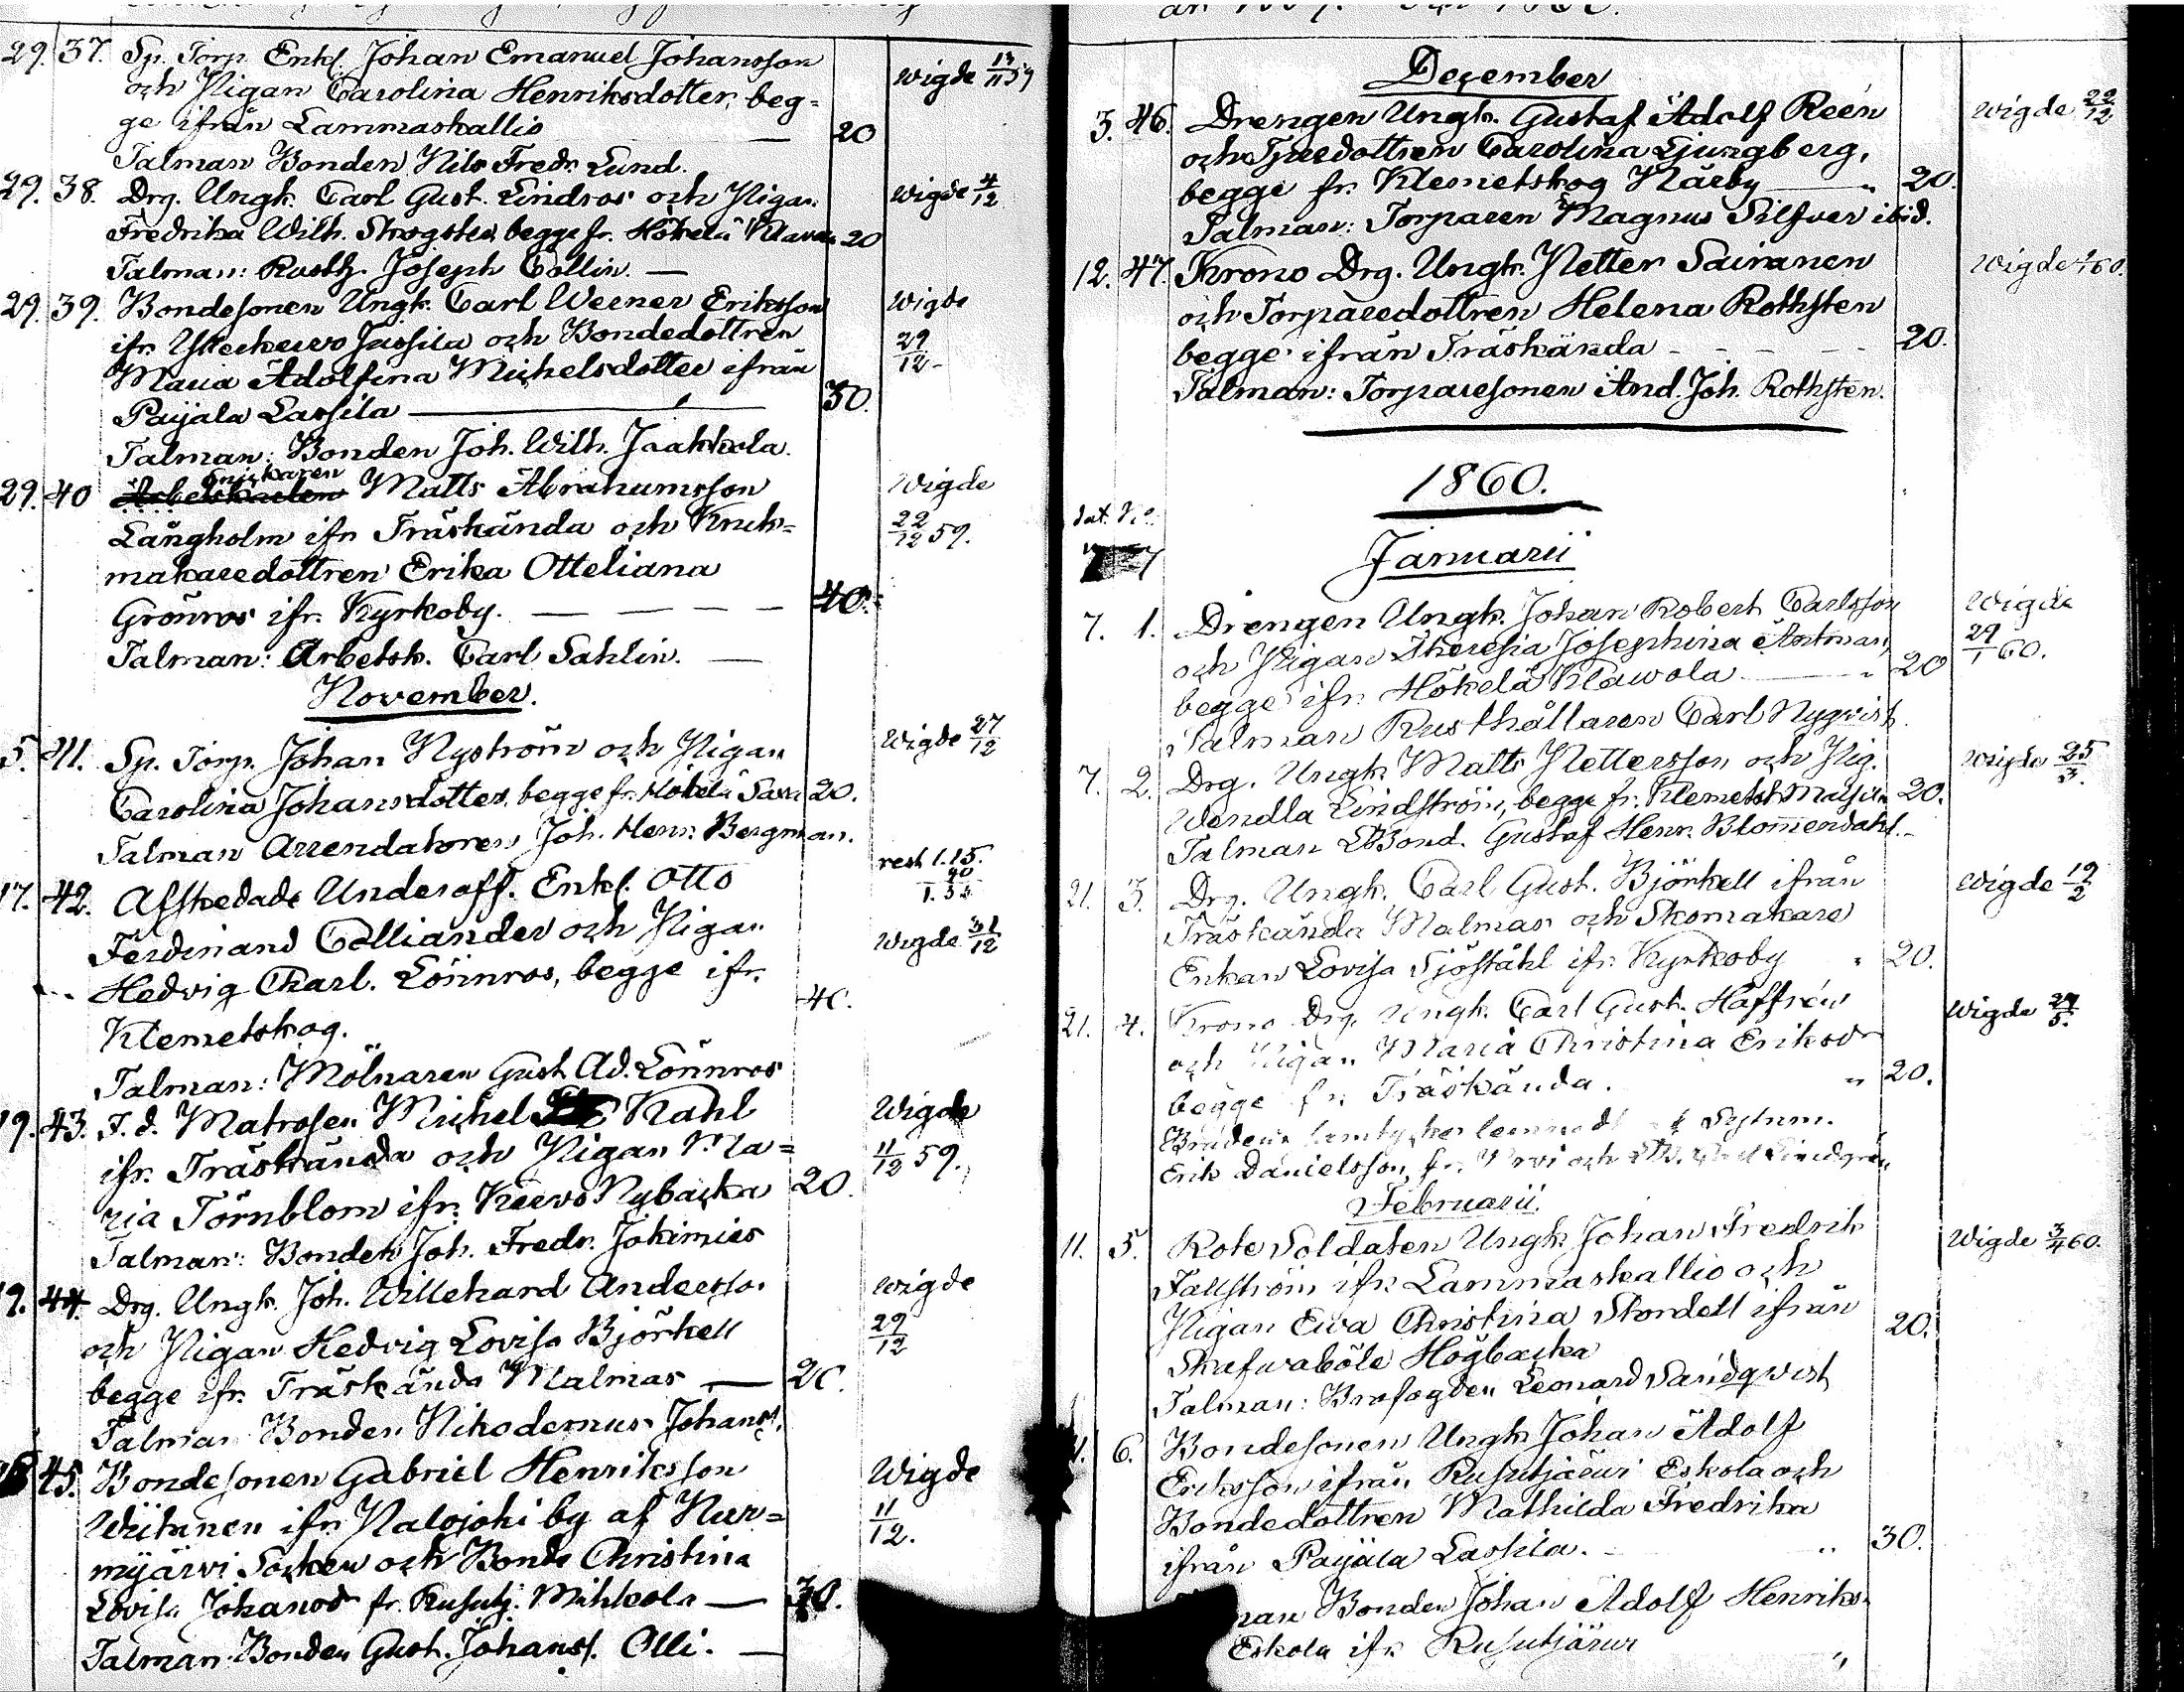 29. 37. Sp. Torp. Enkl. Johan Emanuel Johansson
och Pigan Carolina Henriksdotter, beg-
ge ifrån Lammaskallio — 20
wigde 13/11 59
Talman Bonden Nils Fredr. Lund.
29. 38. Drg. Ungk. Carl Gust. Lindros och Pigan
wigde 4/12
Fredrika Wilh. Skogster begge fr. Hökelä Klavola 20
Talman: Rusth. Joseph Collin. —
29. 39. Bondesonen Ungk. Carl Werner Eriksson
ifr. Yliskerwo Jussila och Bondedottren
Maria Adolfina Michelsdotter ifrån
Paijala Lassila — 30.
wigde
29/12 -
Talman: Bonden Joh. Wilh. Jaakkola.
29. 40 Snickaren Matts Abrahamsson
Långholm ifr. Träskända och Kruk-
makaredottren Erika Otteliana
Grönros ifr. Kyrkoby. — — — — 40.
Wigde
22/12 59.
Talman: Arbetsk. Carl Sahlin. —
November.
5. 41. Sp. Torp. Johan Nyström och Pigan
Wigde 27/12
Carolina Johansdotter, begge fr. Hökelä 20.
Talman Arrendatoren Joh. Henr. Bergman.
rest 1.15.
17. 42. Afskedade Underoff. Enkl. Otto
Ferdinand Colliander och Pigan
Hedvig Charl. Lönnros, begge ifr.
Klemetskog. 40.
Wigde 31/12
Talman: Mölnaren Gust. Ad. Lönnros
19. 43. F. d. Matrosen Michel Stahl
ifr. Träskända och Pigan Ma-
ria Törnblom ifr. Kerwo Nybacka 20.
Wigde
11/12 59.
Talman: Bonden Joh. Fredr. Jokimies
19. 44. Drg. Ungk. Joh. Willehard Andersson
och Pigan Hedvig Lovisa Björkell
begge ifr. Träskända Malmas — 20.
wigde
29/12
Talman Bonden Nikodemus Johanss.
45. Bondesonen Gabriel Henriksson
Wiitanen ifr. Palojoki by af Nur-
mijärvi Socken och Bonde Christina
Lovisa Johansdr fr. Rusutj. Mihkola — 30.
Wigde
11/12.
Talman Bonden Gust. Johanss. Olli. —
December
3. 46. Drengen Ungk. Gustaf Adolf Reén
och Tjuredottren Carolina Ljungberg,
begge fr. Klemetskog Närby — " 20.
wigde 22/12
Talman: Torparen Magnus Silfver ibid.
12. 47. Krono Drg. Ungk. Petter Sairanen
och Torparedottren Helena Rothsten
begge ifrån Träskända - - - - - 20.
Talman: Torparesonen And. Joh. Rothsten.
1860.
dat. No.
Januarii
7. 1. Drengen Ungk. Johan Robert Carlsson
och Pigan Theresia Josephina Antman,
begge ifr. Hökelä Klawola — " 20
Wigde
29/1 60.
Talman Rusthållaren Carl Nyqvist.
7. 2. Drg. Ungk. Matts Pettersson och Pig.
Wendla Lindström, begge fr. Klemetsk. 20.
wigde 25/3.
Talman Bond. Gustaf Henr. Blommendahl. -
21. 3. Drg. Ungk. Carl Gust. Björkell ifrån
Träskända Malmas och Skomakare
Enkan Lovisa Sjöståhl ifr. Kyrkoby " 20.
wigde 19/2
21. 4. Krono Drg. Ungk. Carl Gust. Haffrén
och Pigan Maria Christina Eriksdr
begge fr. Träskända. " 20.
wigde 27/5.
Brudens samtycke lemnadt
Erik Danielsson, fr. och Lindgrén
Februarii.
11. 5. Rote Soldaten Ungk. Johan Fredrik
Fallström ifr. Lammaskallio och
Pigan Ewa Christina Skordell ifrån
Skafwaböle Högbacka 20.
Wigde 3/4 60.
Talman: Brofogden Leonard Sandqwist
6. Bondesonen Ungk. Johan Adolf
Eriksson ifrån Rusutjärwi Eskola och
Bondedottren Mathilda Fredrika
ifrån Paijala Lassila. - " 30.
man Bonden Johan Adolf Henrikss.
Eskola ifr. Rusutjärwi "